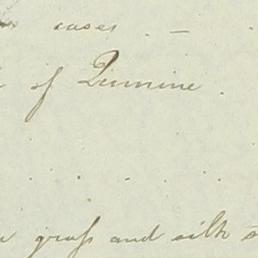 cases. –
of Quinine.
grass and silk